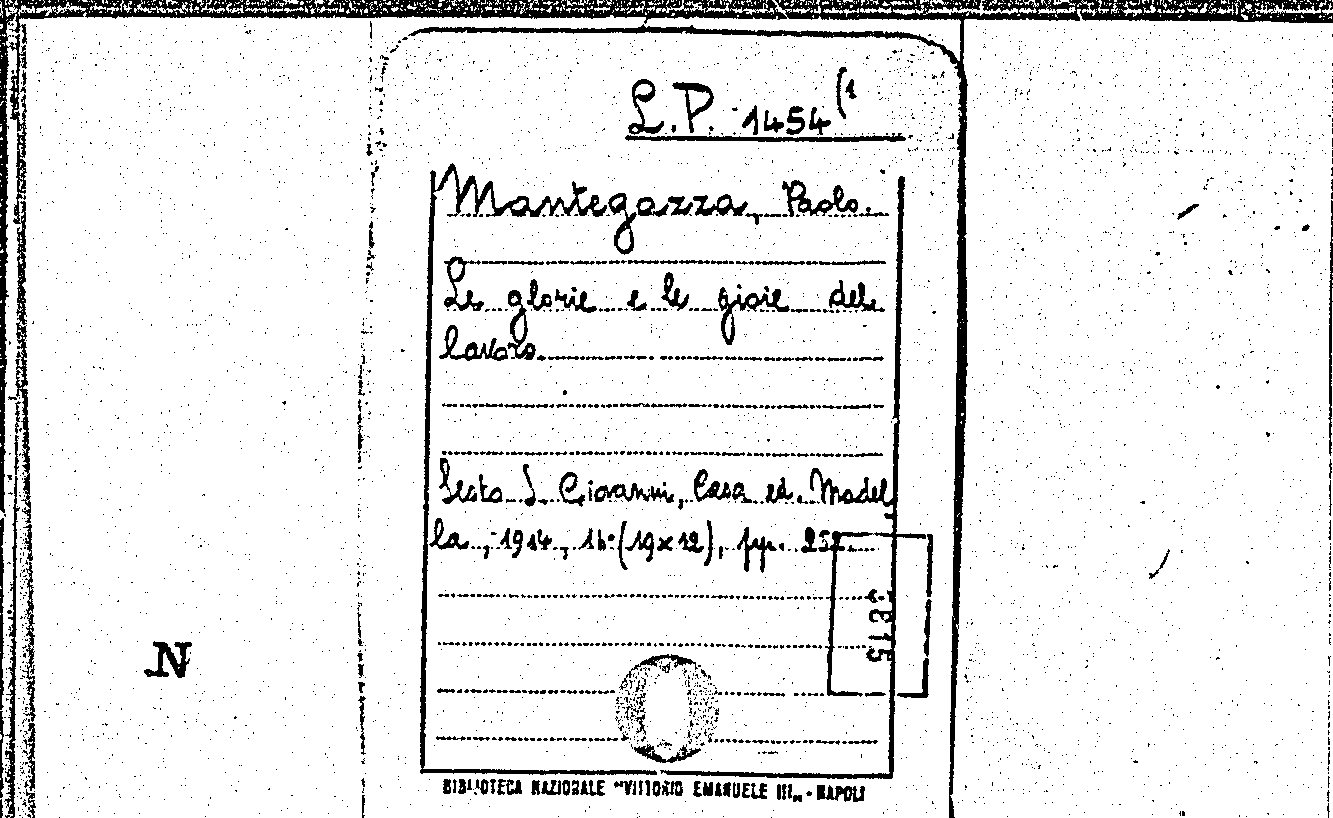 L.P. 1454 (1
Mantegazza, Paolo.
Le glorie e le gioie del
lavoro.
Sesto S. Giovanni, Casa ed. Madel
la, 1914, 16°(19x12), pp. 252.
5615
N
BIBLIOTECA NAZIONALE "VITTORIO EMANUELE III" - NAPOLI